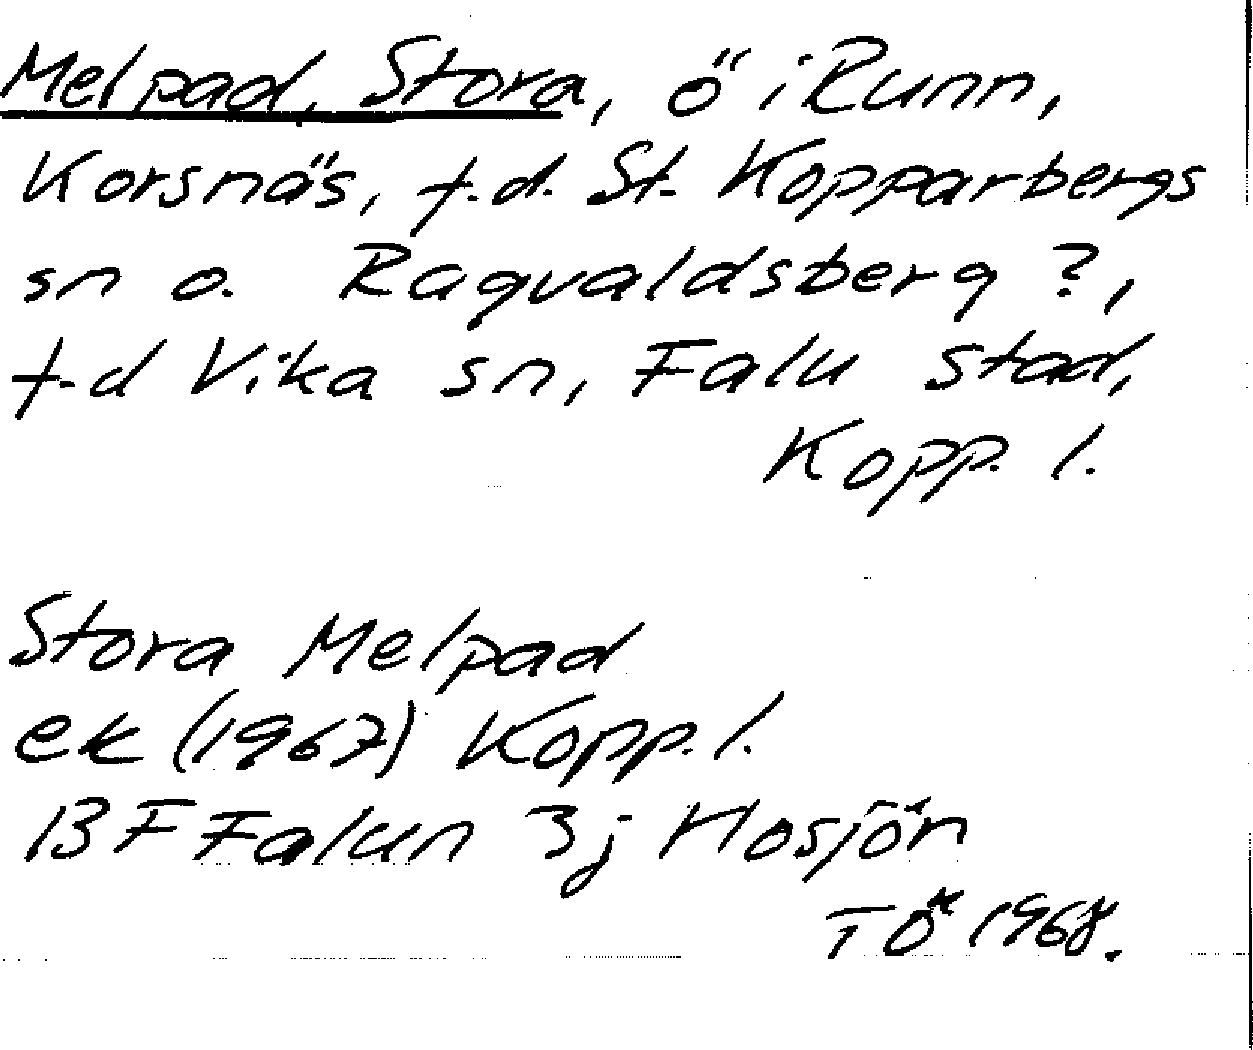 Melpad, Stora, ö i Runn,
Korsnäs, f.d. St. Kopparbergs
sn o. Ragvaldsberg ?,
f.d Vika sn, Falu stad,
Kopp. l.
Stora Melpad
ek (1967) Kopp. l.
13 F Falun 3j Hosjön
TÖ 1968.